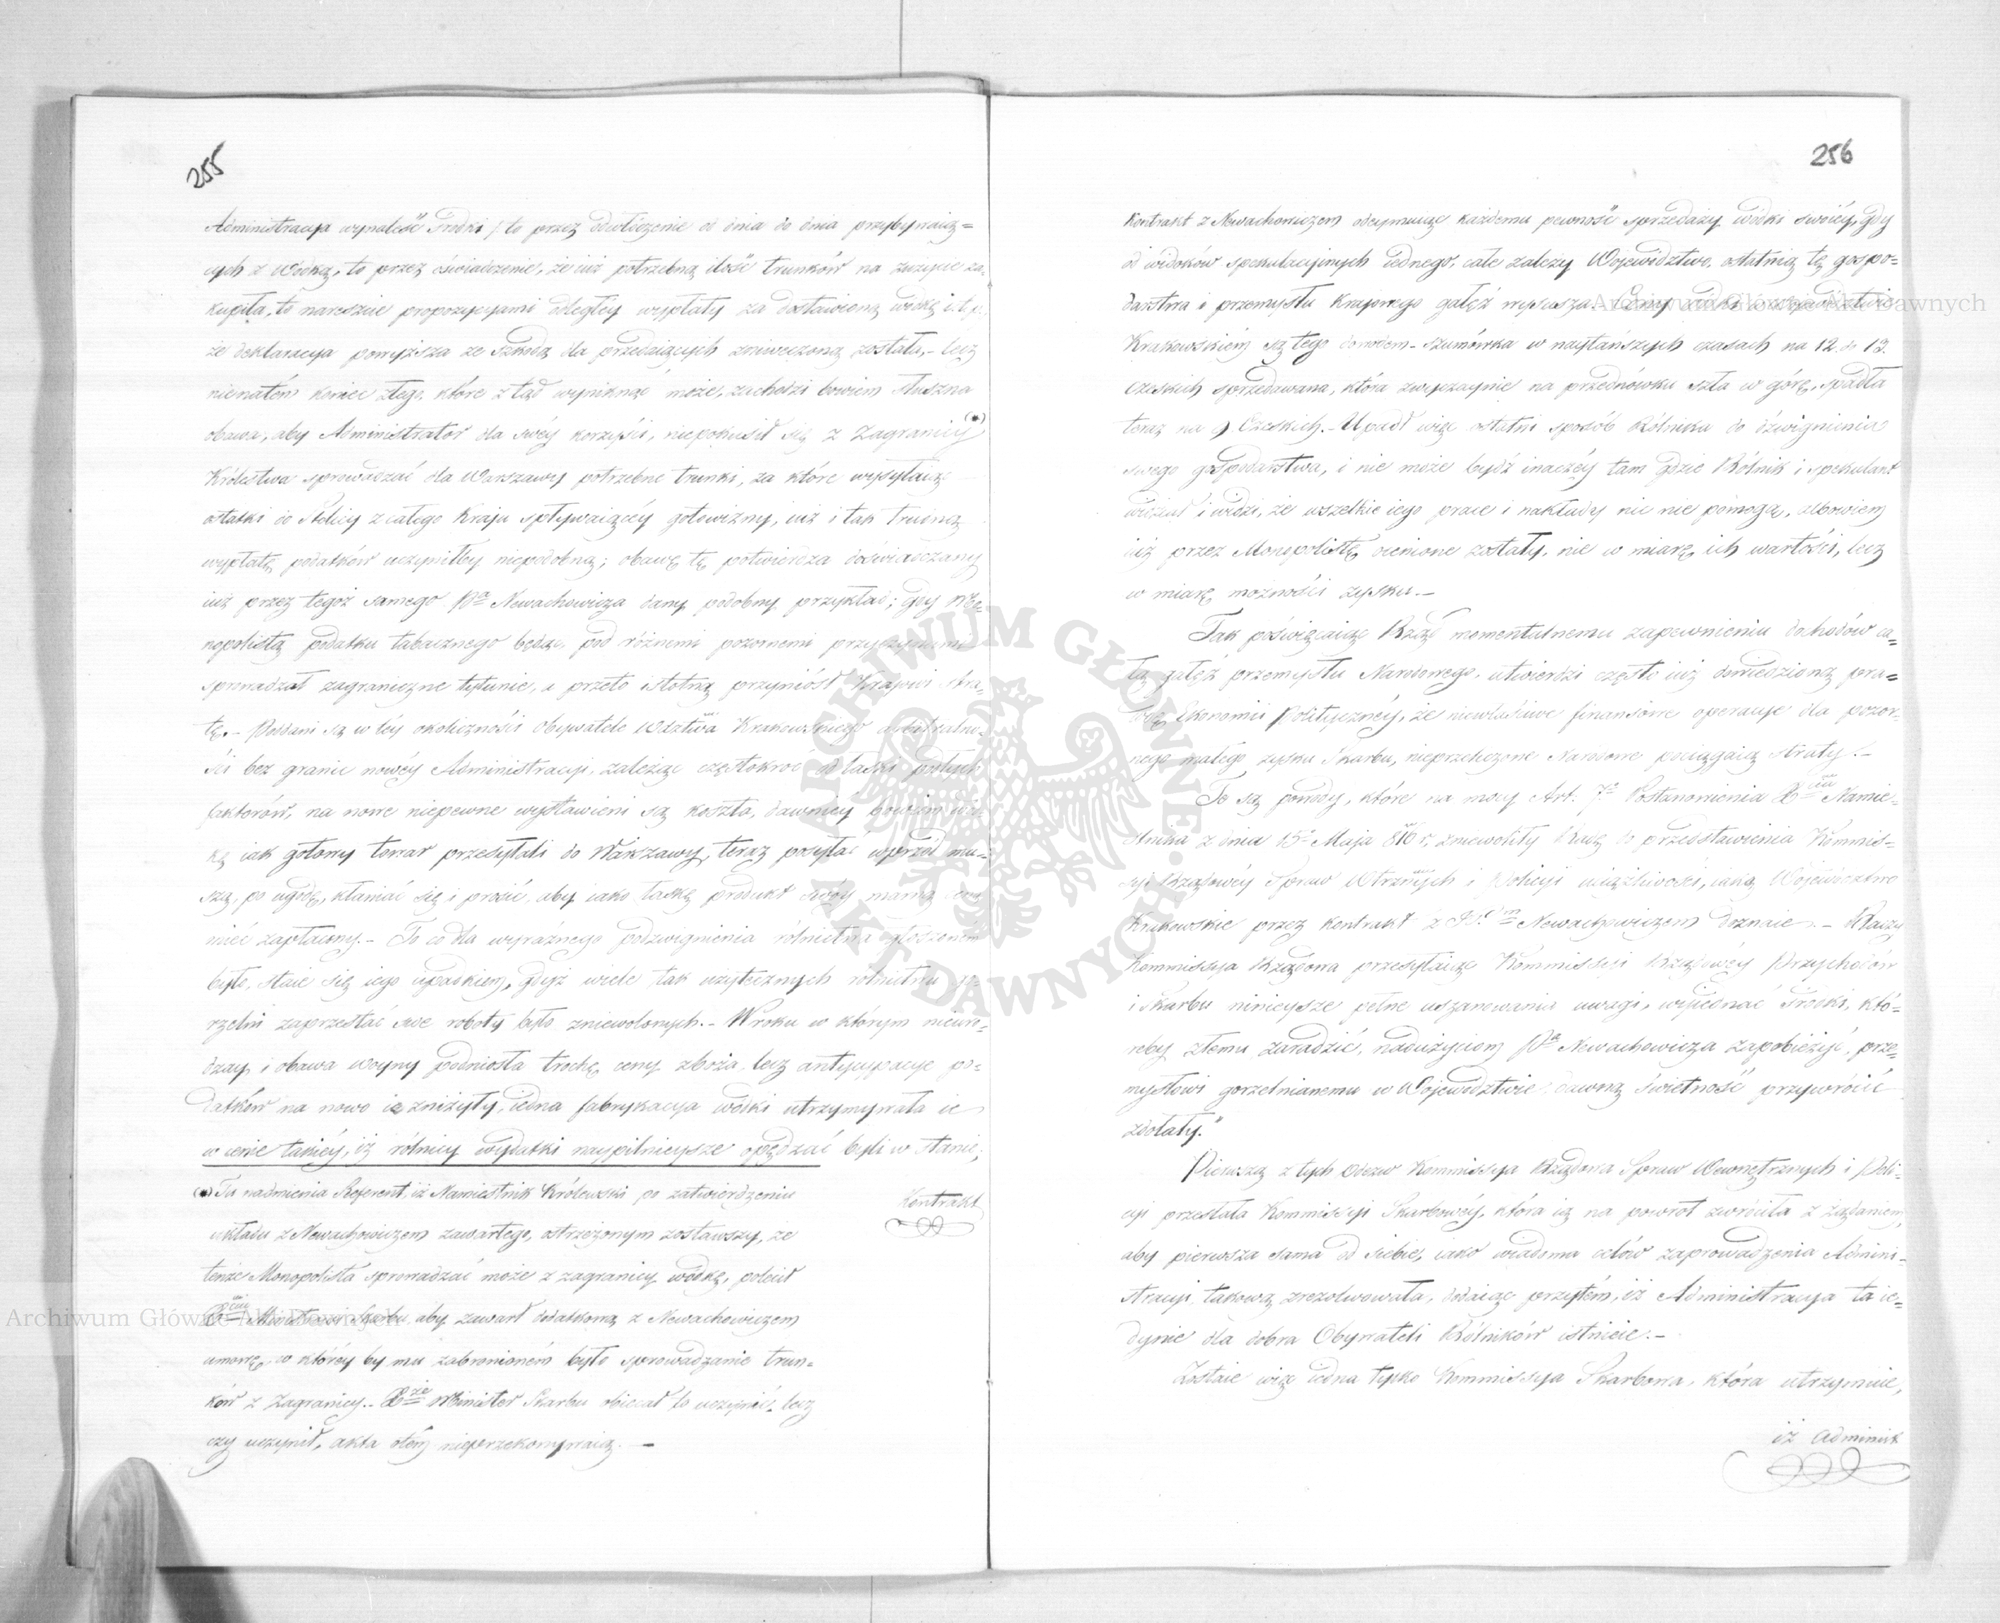 255
Administracya wynaleść środki / to przez odwłóczenie od dnia do dnia przybywaią=
cych z wódką, to przez oświadczenie, że iuż potrzebną ilość trunków na zużycie za-
kupiła, to nareszcie propozycyami odległey wypłaty za dostawioną wódkę i.t.p.
że deklaracya powyższa ze szkodą dla przedaiących zniweczoną została, – lecz
nienatém koniec złego, które ztąd wyniknąć może, zachodzi bowiem słuszna
obawa, aby Administrator dla swéy korzyści, niepokusił się z Zagranicy (*)
Królestwa sprowadzać dla Warszawy potrzebne trunki, za które wysyłaiąc
ostatki do Stolicy z całego Kraju spływaiącéy gotowizny, iuż i tak trudną
wypłatę podatków uczyniłby niepodobną; obawę tę potwierdza doświadczany
iuż przez tegoż samego Pa Newachowicza dany podobny przykład; gdy Mo-
nopolistą podatku tabacznego będąc, pod różnemi pozornemi przyczynami
sprowadzał zagraniczne tytunie, a przeto istotną przyniósł Krajowi stra-
tę. – Poddani są w téy okoliczności Obywatele Wdztwa Krakowskiego
ści bez granic nowéy Administracyi, zależąc częstokroć od łaski
faktorów, na nowe niepewne wystawieni są koszta, dawniéy bowiem wód-
kę iak gotowy towar przesyłali do Warszawy, teraz posyłać wprzód mu-
szą, po ugodę, kłaniać się i prosić, aby iako łaskę produkt swóy marną
mieć zapłacony. – To co dla wyraźnego podzwignienia rólnictwa ogłoszeném
było, staie się iego upadkiem, gdyż wiele tak użytecznych rolnictwu go-
rzelni zaprzestać swe roboty było zniewolonych. – W roku w którym nieuro-
dzay, i obawa woyny podniosła trochę ceny zboża, lecz antycypacye po-
datków na nowo ie zniżyły, iedna fabrykacya wódki utrzymywała ie
w cenie takiéy, iż rólnicy wydatki naypilnieysze opędzać byli w stanie;
Kontrakt
(*) Tu nadmienia Referent, iż Namiestnik Królewski po zatwierdzeniu
układu z Newachowiczem zawartego, ostrzeżonym zostawszy, że
tenże Monopolista sprowadzać może z zagranicy wódkę, polecił
Ministrowi Skarbu, aby zawarł dodatkową z Newachowiczem
umowę, w któréy by mu zabronioném było sprowadzanie trun-
ków z Zagranicy. – Minister Skarbu obiecał to uczynić, lecz
czy uczynił, akta otém nieprzekonywaią. —
256
Kontrakt z Newachowiczem odeymuiąc każdemu pewność sprzedaży wódki swoiéy, gdy
od widoków spekulacyinych iednego, całe zależy Województwo, ostatnią tę gospo-
darstwa i przemysłu Krajowego gałęź wysusza. Ceny wódki w Województwie
Krakowskiém są tego dowodem – szumówka w naytańszych czasach na 12. do 13.
Czeskich sprzedawana, która zwyczaynie na przednówku szła w górę, spadła
teraz na 9 Czeskich. – Upadł więc ostatni sposób Rólnika do dźwignienia
swego gospodarstwa, i nie może bydź inaczéy tam gdzie Rólnik i spekulant
wiedział i widzi, że wszelkie iego prace i nakłady nic nie pomogą, albowiem
iuż przez Monopolistę ocenione zostały, nie w miarę ich wartości, lecz
w miarę możności zysku. –
Tak poświęcaiąc Rząd momentalnemu zapewnieniu dochodów ca-
łą gałęź przemysłu Narodowego, utwierdzi często iuż dowiedzioną praw-
dę Ekonomii Polityczney, że niewłaściwe finansowe operacye dla pozor-
nego małego zysku Skarbu, nieprzeliczone Narodowe pociągaią straty! –
To są powody, które na mocy Art. 7o Postanowienia Xcia Namie-
stnika z dnia 15o Maja 816 r. zniewoliły Radę do przedstawienia Kommis-
syi Rządowéy Spraw Wtrznych i Policyi uciążliwości, iaką Województwo
Krakowskie przez kontrakt z Newachowiczem doznaie. – Raczy
Kommissya Rządowa przesyłaiąc Kommissyi Rządowéy Przychodów
i Skarbu ninieysze pełne uszanowania uwagi, wyiednać środki, któ-
reby złemu zaradzić, nadużyciom Pa Newachowicza zapobieżyć, prze-
mysłowi gorzelnianemu w Województwie dawną świetność przywrócić
zdołały."
Pierwszą z tych Odezw Kommissya Rządowa Spraw Wewnętrznych i Poli-
cyi przesłała Kommissyi Skarbowéy, która ią na powrót zwróciła z żądaniem,
aby pierwsza sama od siebie, iako wiadoma celów zaprowadzenia Admini-
stracyi, takową zrezolwowała, dodaiąc przytém, iż Administracya ta ie-
dynie dla dobra Obywateli Rólników istnieie. –
Zostaie więc iedna tylko Kommissya Skarbowa, która utrzymuie,
iż Administ
Archiwum Główne Akt Dawnych
Archiwum Główne Akt Dawnych
ARCHIWUM GŁÓWNE AKT DAWNYCH